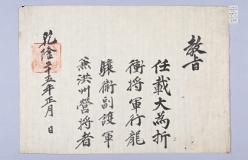 教旨
任載大為折
衝將軍行龍
驤衛副護軍
兼洪州營將者
乾隆二十五年正月 日